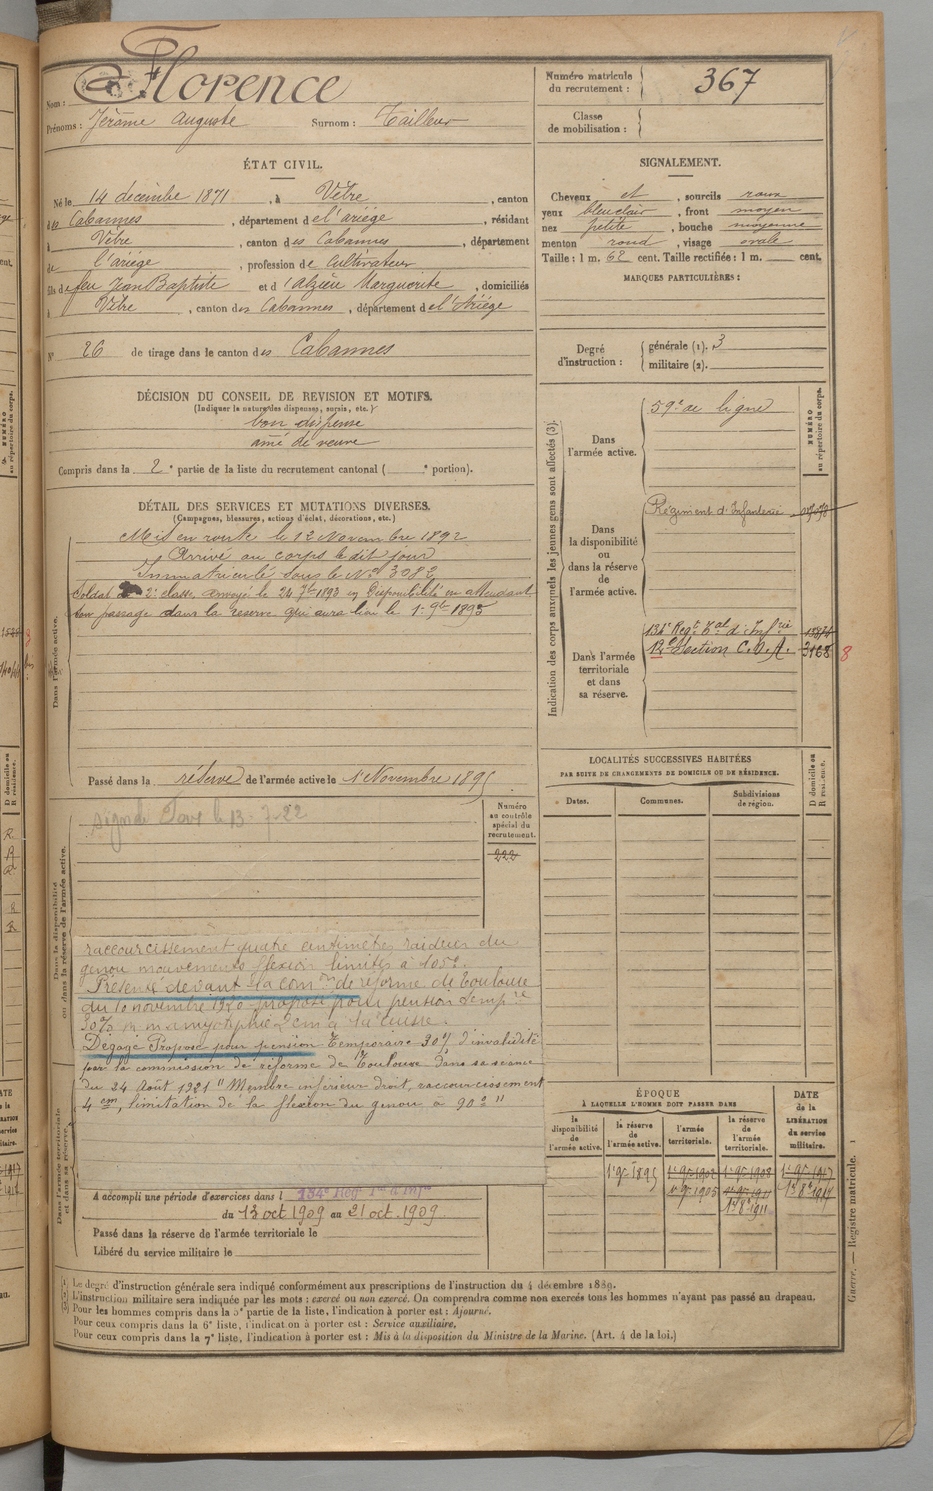 Nom : Florence
Prénoms : Jérôme Auguste Surnom : Tailleur
Numéro matricule du recrutement : 367
Classe de mobilisation :
ÉTAT CIVIL.
Né le 14 décembre 1871, à Vèbre, canton
des Cabannes, département de l'ariège, résidant
à Vèbre, canton des Cabannes, département
de l'ariège, profession de Cultivateur
fils de feu Jean Baptiste et d', domiciliés
à Vèbre, canton des Cabannes, département de l'Ariège
N° 26 de tirage dans le canton des Cabannes
SIGNALEMENT.
Cheveux et, sourcils roux
yeux bleu clair, front moyen
nez petite, bouche moyenne
menton rond, visage ovale
Taille : 1 m. 62 cent. Taille rectifiée : 1 m. cent.
MARQUES PARTICULIÈRES :
Degré d'instruction :
générale (1). 3
militaire (2).
DÉCISION DU CONSEIL DE REVISION ET MOTIFS.
(Indiquer la nature des dispenses, sursis, etc.)
bon dispense
ainé de veuve
Compris dans la 2e partie de la liste du recrutement cantonal ( e portion).
DÉTAIL DES SERVICES ET MUTATIONS DIVERSES.
(Campagnes, blessures, actions d'éclat, décorations, etc.)
Dans l'armée active.
Mis en route le 12 Novembre 1892
Arrivé au corps le dit jour
Immatriculé sous le No 3082
Soldat de 2e classe, envoyé le 24 7bre 1893 en Disponibilité en attendant
son passage dans la réserve qui aura lieu le 1er 9bre 1895
Passé dans la réserve de l'armée active le 1er Novembre 1895
Dans la disponibilité ou dans la réserve de l'armée active.
le 13-7-22
Numéro au contrôle spécial du recrutement.
222
raccourcissement quatre centimètres raideur du
genou mouvements flexion limités à 105°.
Présenté devant la comon de réforme de Toulouse
du 10 novembre 1920 proposé pour pension temp re
30% amyotrophie 2cm à la cuisse.
Dégagé Proposé pour pension Temporaire 30% d'invalidité
par la commission de réforme de Toulouse dans sa séance
du 24 Août 1921 "Membre inférieur droit, raccourcissement
4 cm, limitation de la flexion du genou à 90° "
Dans l'armée territoriale et dans sa réserve.
A accompli une période d'exercices dans l 134e Régt Tal d'Infie
du 13 oct 1909 au 21 oct. 1909.
Passé dans la réserve de l'armée territoriale le
Libéré du service militaire le
Indication des corps auxquels les jeunes gens sont affectés (3).
NUMÉRO au répertoire du corps.
Dans l'armée active.
59e de ligne
Dans la disponibilité ou dans la réserve de l'armée active.
Régiment d'Infanterie
Dans l'armée territoriale et dans sa réserve.
134e Régt Tal d'Infrie
12e Section C.O.A. 3168 8
LOCALITÉS SUCCESSIVES HABITÉES
PAR SUITE DE CHANGEMENTS DE DOMICILE OU DE RÉSIDENCE.
Dates. Communes. Subdivisions de région. D domicile ou R résidence.
ÉPOQUE
À LAQUELLE L'HOMME DOIT PASSER DANS
la disponibilité de l'armée active. la réserve de l'armée active. l'armée territoriale. la réserve de l'armée territoriale. DATE de la LIBÉRATION du service militaire.
1er 9bre 1895 1er 9bre 1902 1er 9bre 1908 1er 9bre 1917
1er 9bre 1905 1er 9bre 1911 1er 8bre 1917
1er 8bre 1911
(1) Le degré d'instruction générale sera indiqué conformément aux prescriptions de l'instruction du 4 décembre 1889.
(2) L'instruction militaire sera indiquée par les mots : exercé ou non exercé. On comprendra comme non exercés tous les hommes n'ayant pas passé au drapeau.
(3) Pour les hommes compris dans la 5e partie de la liste, l'indication à porter est : Ajourné.
Pour ceux compris dans la 6e liste, l'indication à porter est : Service auxiliaire.
Pour ceux compris dans la 7e liste, l'indication à porter est : Mis à la disposition du Ministre de la Marine. (Art. 4 de la loi.)
Guerre. — Registre matricule. 1